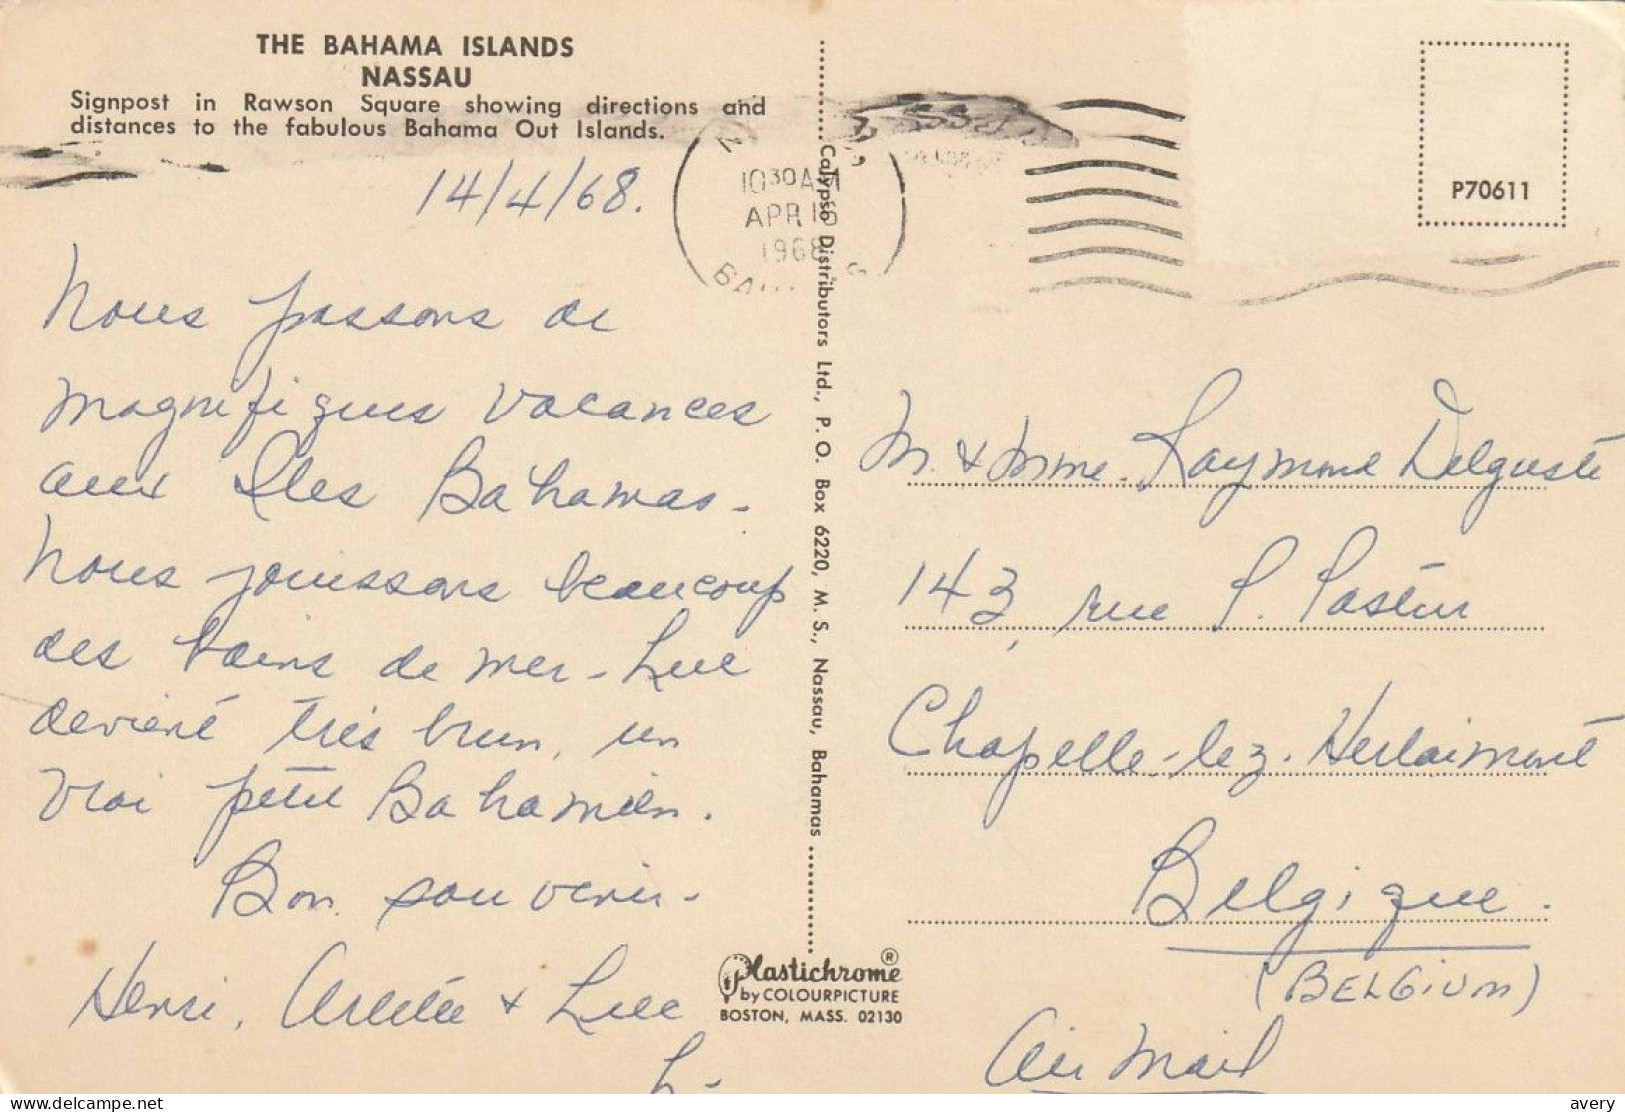 THE BAHAMA ISLANDS
NASSAU
Signpost in Rawson Square showing directions and
distances to the fabulous Bahama Out Islands.
14/4/68.
Nous passons de
magnifiques vacances
aux Iles Bahamas -
Nous jouissons beaucoup
des bains de mer - Luc
devient très brun, un
vrai petit Bahamien.
Bon souvenir -
Henri, & Luc
L-
10 30 AM
APR 16
1968
Calypso Distributors Ltd., P. O. Box 6220, M. S., Nassau, Bahamas
Plastichrome ®
by COLOURPICTURE
BOSTON, MASS. 02130
P70611
M. & Mme. Raymond Delguste
143, rue P. Pasteur
Chapelle-lez-Herlaimont
Belgique.
(BELGIUM)
Air Mail
delcampe.net
avery